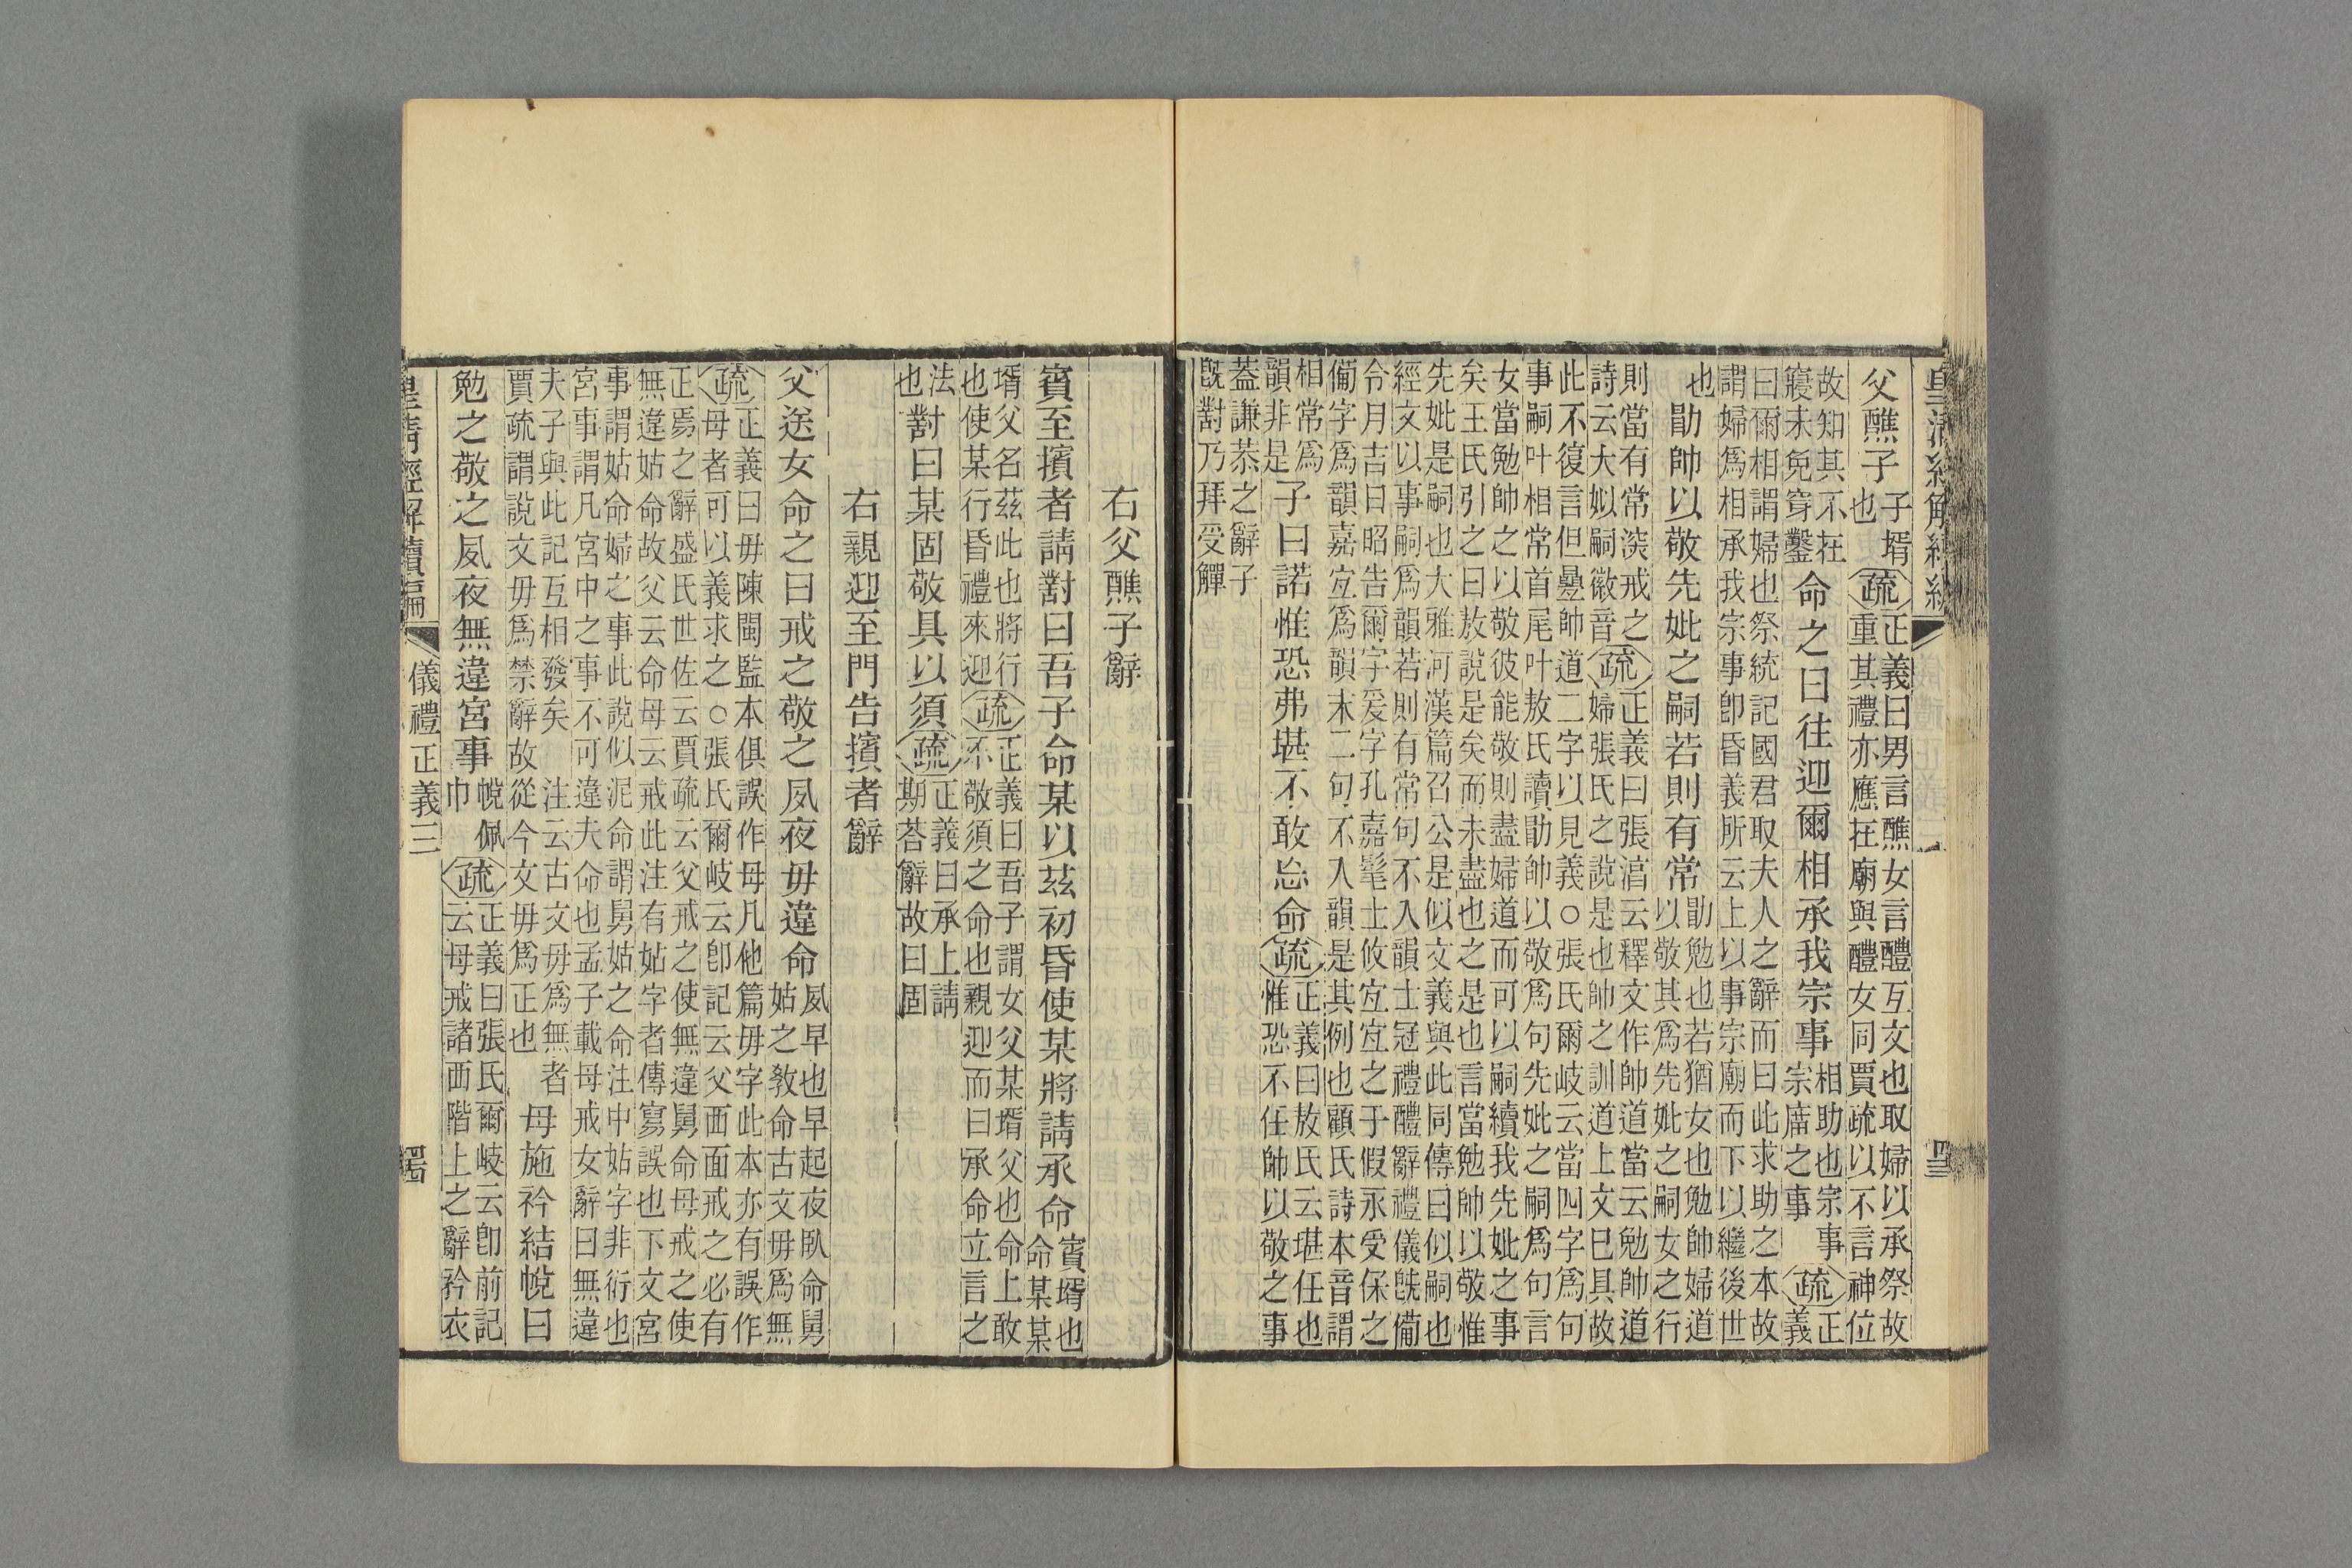 父醮子子壻也疏正義曰男言醮女言醴互文也取婦以承祭故重其禮亦應在廟與醴女同賈疏以不言神位
故知其不在寢未免穿鑿命之曰往迎爾相承我宗事相助也宗事宗庿之事疏正義
曰爾相謂婦也祭統記國君取夫人之辭而曰此求助之本故謂婦爲相承我宗事卽昏義所云上以事宗廟而下以繼後世
也勖帥以敬先妣之嗣若則有常勖勉也若猶女也勉帥婦道以敬其爲先妣之嗣女之行
則當有常深戒之詩云大姒嗣徽音疏正義曰張淳云釋文作帥道當云勉帥道婦張氏之說是也帥之訓道上文已具故
此不復言但疊帥道二字以見義○張氏爾岐云當四字爲句事嗣叶相常首尾叶敖氏讀勖帥以敬爲句先妣之嗣爲句言
女當勉帥之以敬彼能敬則盡婦道而可以嗣續我先妣之事矣王氏引之曰敖說是矣而未盡也之是也言當勉帥以敬惟
先妣是嗣也大雅河漢篇召公是似文義與此同傳曰似嗣也經文以事嗣爲韻若則有常句不入韻士冠禮醴辭禮儀旣備
令月吉日昭告爾字爰字孔嘉髦士攸宜宜之于假永受保之備字爲韻嘉宜爲韻末二句不入韻是其例也顧氏詩本音謂
相常爲韻非是子曰諾惟恐弗堪不敢忘命疏正義曰敖氏云堪任也惟恐不任帥以敬之事
蓋謙恭之辭子旣對乃拜受觶
右父醮子辭
賓至擯者請對曰吾子命某以茲初昏使某將請承命賓壻也命某某
壻父名茲此也將行也使某行昏禮來迎疏正義曰吾子謂女父某壻父也命上敢不敬須之命也親迎而曰承命立言之
法也對曰某固敬具以須疏正義曰承上請期荅辭故曰固
右親迎至門告擯者辭
父送女命之曰戒之敬之夙夜毋違命夙早也早起夜臥命舅姑之敎命古文毋爲無
疏正義曰毋陳閩監本俱誤作母凡他篇毋字此本亦有誤作母者可以義求之○張氏爾岐云卽記云父西面戒之必有
正焉之辭盛氏世佐云賈疏云父戒之使無違舅命母戒之使無違姑命故父云命母云戒此注有姑字者傳寫誤也下文宮
事謂姑命婦之事此說似泥命謂舅姑之命注中姑字非衍也宮事謂凡宮中之事不可違夫命也孟子載母戒女辭曰無違
夫子與此記互相發矣注云古文毋爲無者賈疏謂說文毋爲禁辭故從今文毋爲正也母施衿結帨曰
勉之敬之夙夜無違宮事帨佩巾疏正義曰張氏爾岐云卽前記云母戒諸西階上之辭衿衣
皇清經解續編
儀禮正義三